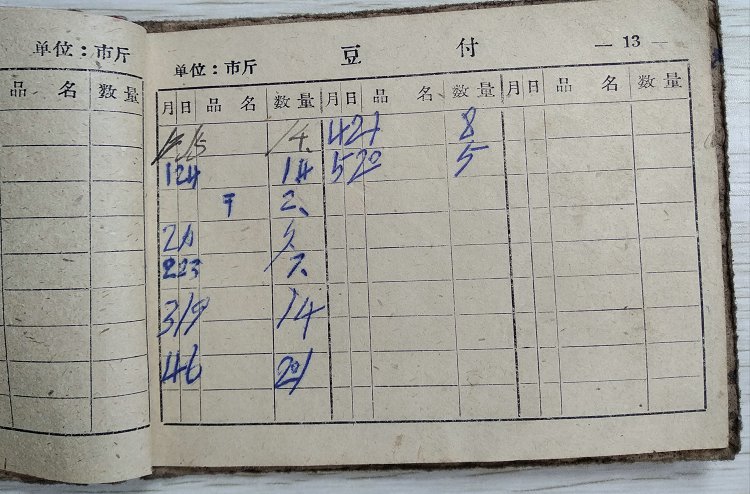 单位：市斤
品 名 数量
单位：市斤 豆 付 — 13 —
月 日 品 名 数量 月 日 品 名 数量 月 日 品 名 数量
14 4 21 8
1 24 14 5 20 5
2
2 23 7
3 19 14
4 6 21